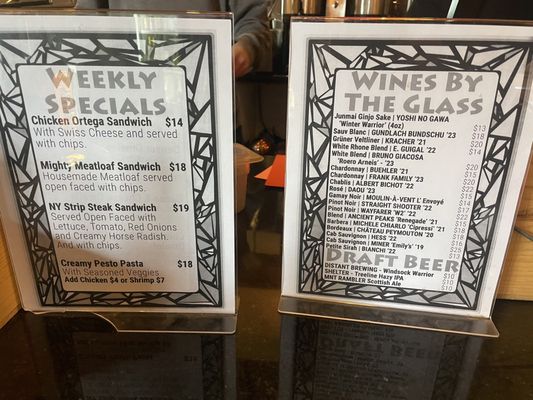 WEEKLY
SPECIALS
Chicken Ortega Sandwich $14
With Swiss Cheese and served
with chips.
Mighty Meatloaf Sandwich $18
Housemade Meatloaf served
open faced with chips.
NY Strip Steak Sandwich $19
Served Open Faced with
Lettuce, Tomato, Red Onions
and Creamy Horse Radish.
And with chips.
Creamy Pesto Pasta $18
With Seasoned Veggies
Add Chicken $4 or Shrimp $7
WINES BY
THE GLASS
Junmai Ginjo Sake | YOSHI NO GAWA
'Winter Warrior' (4oz) $13
Sauv Blanc | GUNDLACH BUNDSCHU '23 $18
Grüner Veltliner | KRACHER '21 $20
White Rhone Blend | E. GUIGAL '22 $14
White Blend | BRUNO GIACOSA
'Roero Arneis' - '23 $20
Chardonnay | BUEHLER '21 $15
Chardonnay | FRANK FAMILY '23
Chablis | ALBERT BICHOT '22
Rosé | DAOU '23
Gamay Noir | MOULIN-À-VENT L' Envoyé
Pinot Noir | STRAIGHT SHOOTER '22
Pinot Noir | WAYFARER 'W2' '22
Blend | ANCIENT PEAKS 'Renegade' '21
Barbera | MICHELE CHIARLO 'Cipressi' '21
Bordeaux | CHÂTEAU PEYMOUTON '20
Cab Sauvignon | HESS '22
Cab Sauvignon | MINER 'Emily's' '19
Petite Sirah | BIANCHI '22
DRAFT BEER
DISTANT BREWING - Windsock Warrior $10
SHELTER - Treeline Hazy IPA $10
MNT RAMBLER Scottish Ale $10